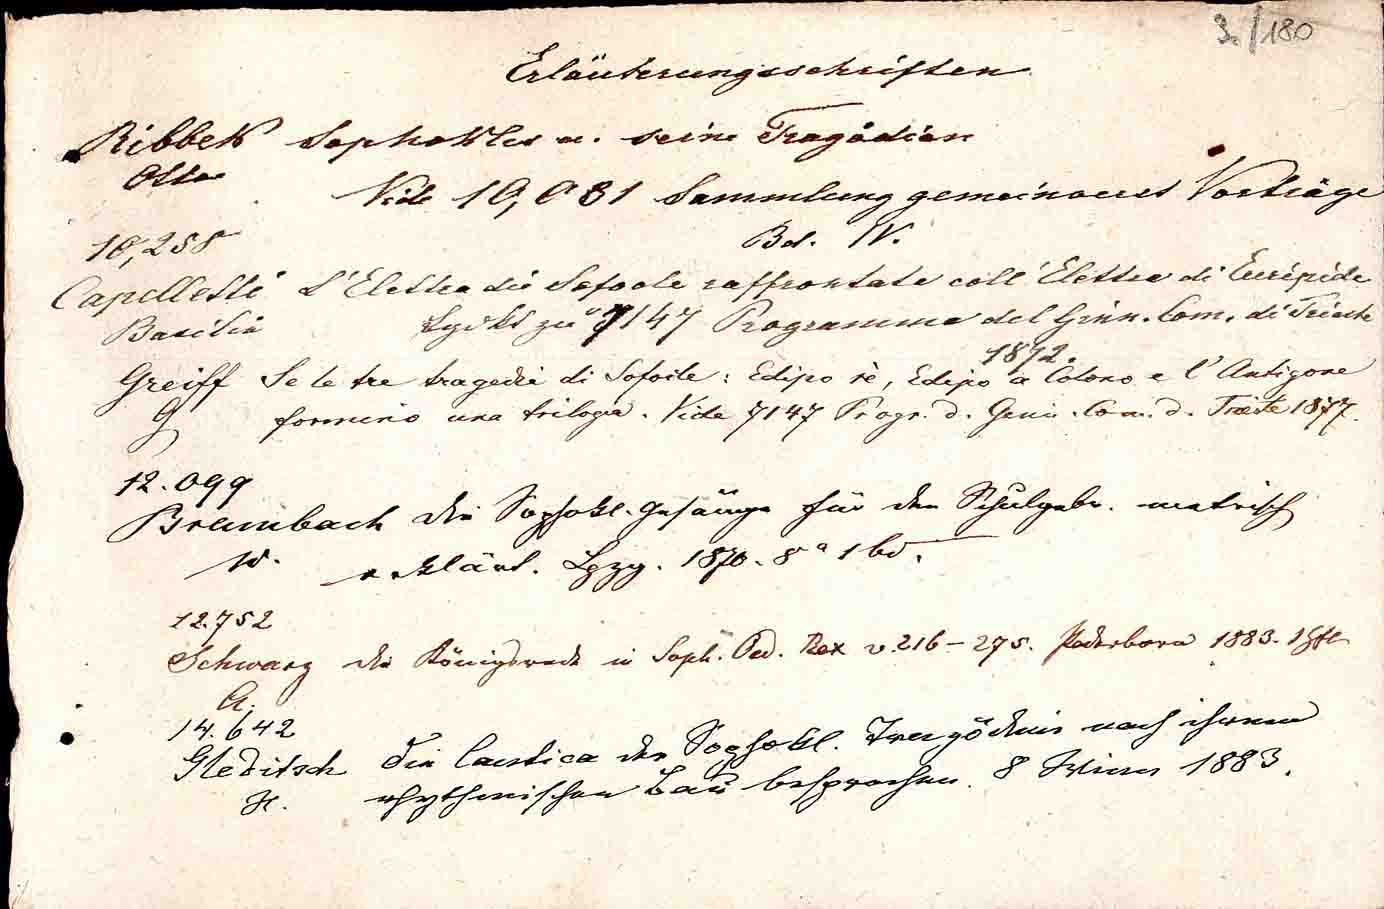 3./180
Erläuterungsschriften
Ribbek Sophokles u. seine Tragödien
Otto
Vide 10,031 Sammlung gemeinverst Vorträge
Bd. IV.
10,258
Capelletti L'Elettra di Sofocle raffrontata coll'Elettra di Euripide
Basilio zu 7147 Programma del Ginn. Com. di Trieste
1872.
Greiff Se le tre tragedie di Sofocle: Edipo rè, Edipo a Colono e l'Antigone
G formino una trilogia. Vide 7147 Progr. d. Ginn. Com. d. Trieste 1877.
12.099
Brambach die Sophokl. Gesänge für den Schulgebr. metrisch
W. erklärt. Lpzg. 1870. 8° 1 bd.
12.752
Schwarz die Königsrede in Soph. Oed. Rex v. 216-275. Paderborn 1883. 1 Hft
A.
14.642
Gleditsch Die Cantica der Sophokl. Tragödien nach ihrem
H. rhythmischen Bau besprochen. 8 Wien 1883.